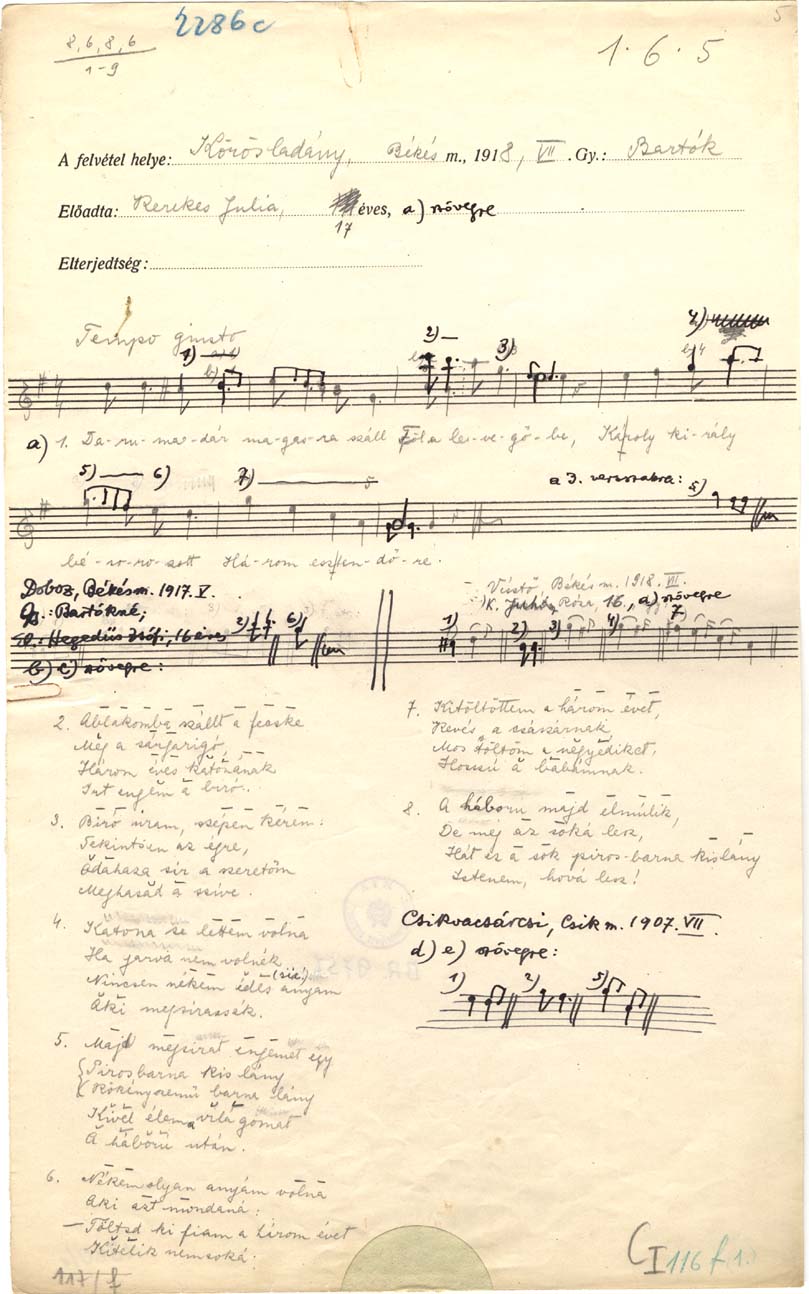 5
8, 6, 8, 6
1-9
2286c
1. 6. 5
A felvétel helye: Körösladány, Békés m., 1918, VII. Gy.: Bartók
Előadta: Kerekes Julia, 17 éves, a) szövegre
Elterjedtség:
Tempo giusto
1) 2) 3) 4)
a) 1. Da-ru-ma-dár ma-gas-ra száll Föl a le-ve-gő-be, Károly ki-rály
5) 6) 7) a 3. versszakra: 5)
bé-so-ro-zott Há-rom esz-ten-dő-re.
Doboz, Békésm. 1917. V.
Gy.: Bartókné;
El.: Hegedüs Zsófi, 16 éves
b) c) szövegre:
2) 6)
Vésztő Békés m. 1918. VII.
K. Juhász Róza, 16., a) szövegre
1) 2) 3) 4) 7)
2. Ablakomba szállt a fecske
Még a sárgarigó,
Három éves katonának
Írt engëm a biró.
3. Biró uram, szépen kérem:
Tekintsen az égre,
Odahaza sir a szeretőm
Meghasad a szíve.
4. Katona se lëttem volna
Ha járvá nem volnék
Nincsen nékëm édës (sic!) anyám
Aki megsirassák.
5. Majd mëgsirat engëmet ëgy
Pirosbarna kis lány
Kökényszemü barna lány
Kivel élem világomat
A háború után.
6. Nékëm olyan anyám volna
Aki azt mondaná:
– Töltsd ki fiam a három évet
Kitëlik nemsoká.
7. Kitöltöttem a három évet,
Kevés a császárnak,
Mos töltöm a négyediket,
Hosszú a babámnak.
8. A háboru majd elmúlik,
De még az soká lesz,
Hát ez a sok piros-barna kislány
Istenem, hová lesz!
Csikvacsárcsi, Csik m. 1907. VII.
d) e) szövegre:
1) 2) 5)
117/f
C I 116 f 1.